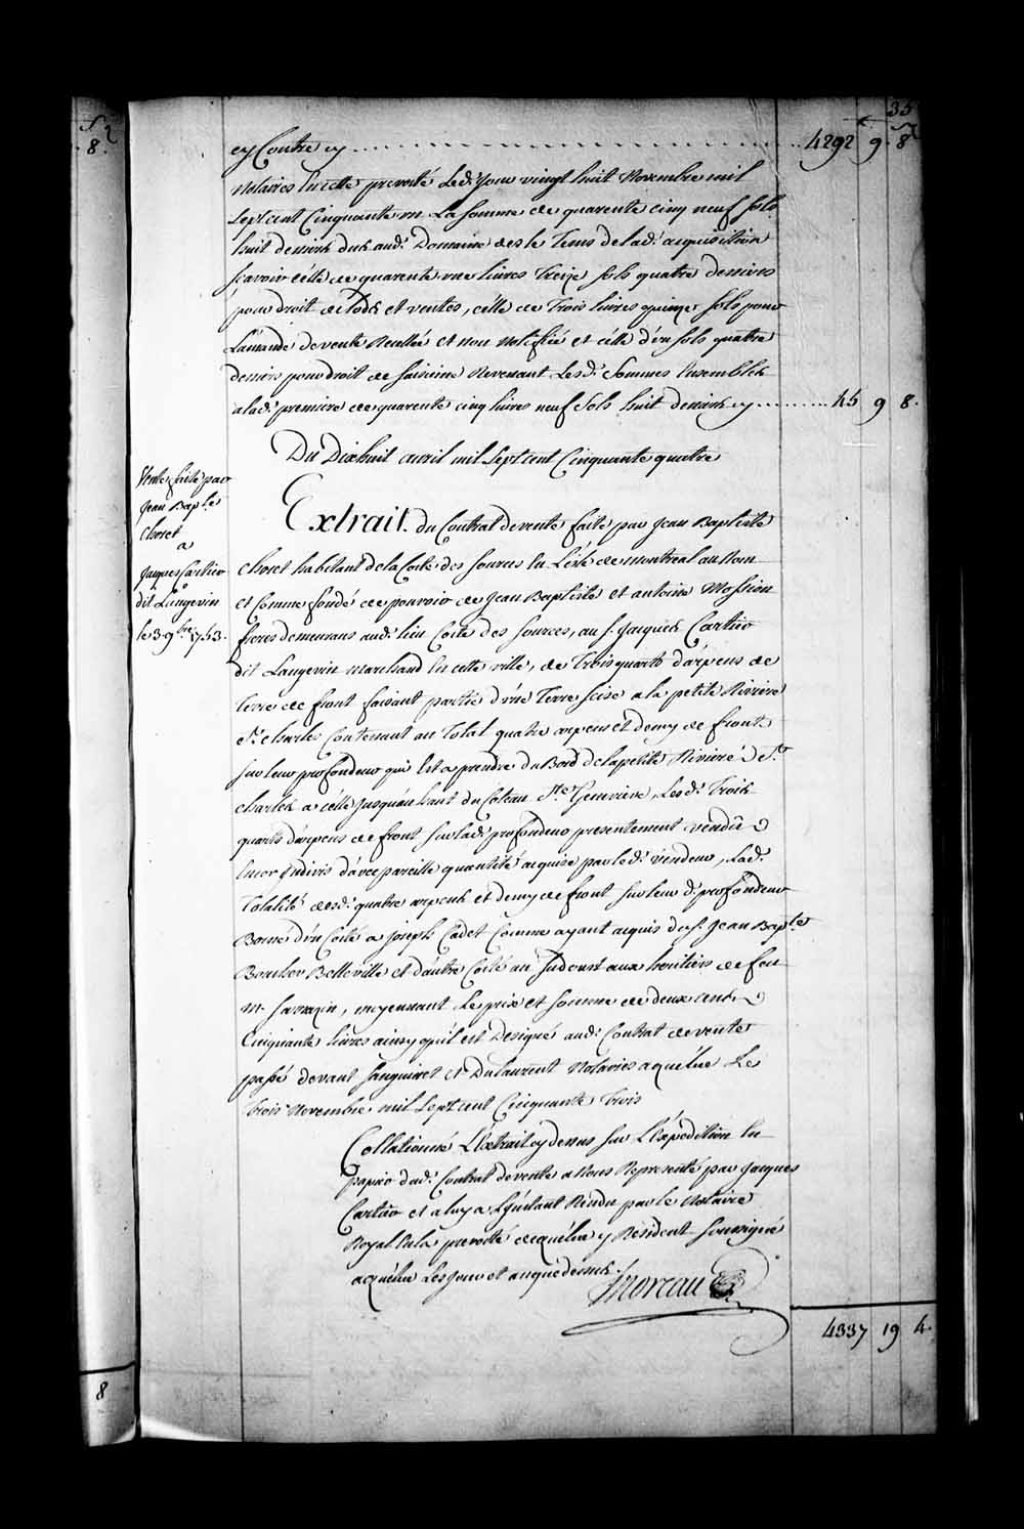 35
8.
ey Contre cy .......... 4292 9. 8
Notaires en cette prevosté Led. Jour vingt huit Novembre mil
Sept cent Cinquante un La somme de quarente cinq neuf sols
huit deniers dub aud. Domaine des le Tems de lad. acquisition
scavoir celle de quarente une livres Treize sols quatre deniers
pour droit de lods et ventes, celle de Trois livres quinze sols pour
L'amande de vente Recellée et non notifiée et celle d'un sols quatre
deniers pour droit de saisinne Revenant Lesd. Sommes Ensembles
a lad. premiere de quarente cinq livres neuf sols huit deniers cy .......... 45 9 8.
Du Dixhuit avril mil Sept cent Cinquante quatre
Vente faite par
Jean Bap.te
Choret
a
Jacques Cartier
dit Langevin
le 3 9.bre 1753.
Extrait du Contrat de vente faite par Jean Baptiste
Choret habitant de la Coste des Sources en L'isle de montreal au Nom
et Comme fondé de pouvoir de Jean Baptiste et antoine Massion
freres demeurans aud. lieu Coste des sources, au S. Jacques Cartier
dit Langevin marchand en cette ville, de Trois quarts d'arpens de
Terre de front faisant partie d'une Terre scise a la petite Riviere
S.t Charles Contenant au Total quatre arpens et demy de front
sur leur profondeur qui Est a prendre du Bord de la petite Riviere S.t
Charles a celle jusqu'en haut du Coteau S.te Genevieve, Lesd. Trois
quarts d'arpens de front sur lad. profondeur presentement vendue
encor Indivis d'avec pareille quantité acquise par led. vendeur, Lad.
Totalité desd. quatre arpens et demy de front sur leur d. profondeur
Borné d'un Costé a Joseph Cadet Comme ayant acquis du S. Jean Bap.te
Boucher Belleville et d'autre Costé au Sudouest aux heritiers de feu
M. Sarrazin, moyennant Le prix et somme de deux cent
Cinquante livres ainsy qu'il est Designé aud. Contrat de vente
passé devant Sanguinet et Dulaurent Notaires a quebec Le
Trois Novembre mil Sept cent Cinquante Trois
Collationné L'Extrait cy dessus sur L'Expedition en
papier dud. Contrat de vente a Nous Representé par Jacques
Cartier et a luy a L'instant Rendu par le Notaire
Royal en la prevosté de quebec y Resident Soussigné
a quebec Les jour et an que dessus.
Moreau
4337 19 4.
8